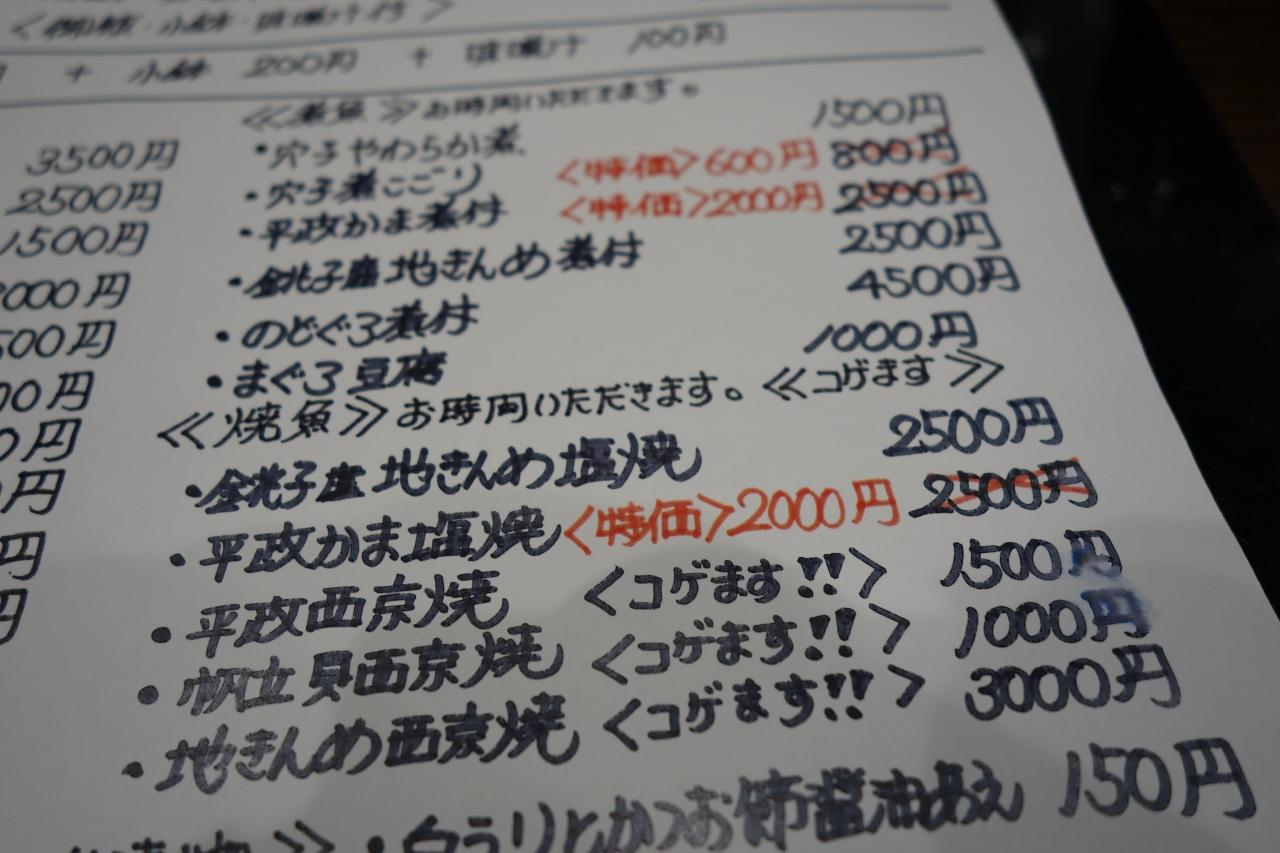 <御飯・小鉢・味噌汁付>
+ 小鉢 200円 + 味噌汁 100円
≪煮魚≫お時間いただきます。
・穴子やわらか煮 1500円
・穴子煮こごり <特価>600円 800円
・平政かま煮付 <特価>2000円 2500円
・銚子産地きんめ煮付 2500円
・のどぐろ煮付 4500円
・まぐろ豆腐 1000円
≪焼魚≫お時間いただきます。≪コゲます≫
・銚子産地きんめ塩焼 2500円
・平政かま塩焼 <特価>2000円 2500円
・平政西京焼 <コゲます!!> 1500円
・帆立貝西京焼 <コゲます!!> 1000円
・地きんめ西京焼 <コゲます!!> 3000円
・白うりとかつお節醤油あえ 150円
3500円
2500円
1500円
000円
500円
00円
0円
円
円
円